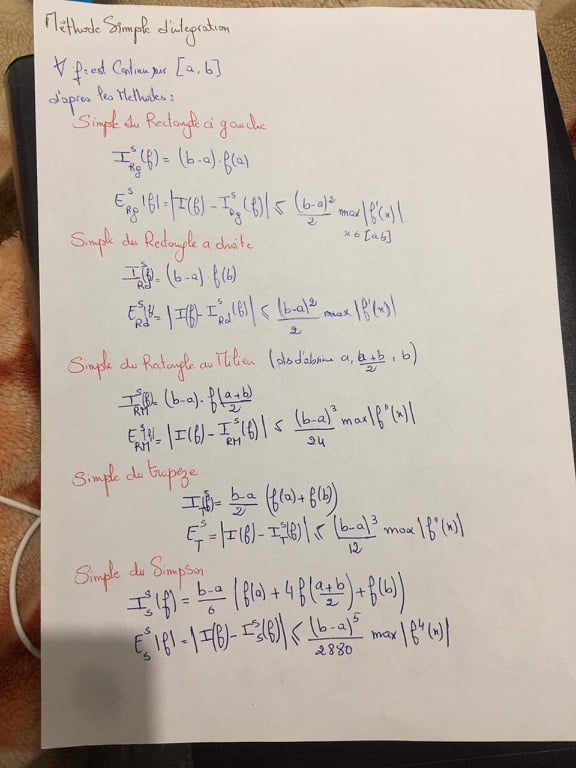 Méthode Simple d'integration
∀ f: est Continu sur [a, b]
d'apres les Methodes:
Simple du Rectangle à gauche
I^S_Rg(f) = (b-a)·f(a)
E^S_Rg|f| = |I(f) - I^S_Rg(f)| ≤ (b-a)²/2 max|f'(x)|
x ∈ [ab]
Simple du Rectangle a droite
I^S_Rd(f) = (b-a)·f(b)
E^S_Rd|f| = |I(f) - I^S_Rd(f)| ≤ (b-a)²/2 max|f'(x)|
Simple du Rectangle au Milieu (pts d'abscisse a, a+b/2, b)
I^S_RM(f) = (b-a)·f(a+b/2)
E^S_RM|f| = |I(f) - I^S_RM(f)| ≤ (b-a)³/24 max|f''(x)|
Simple du trapèze
I^S_T(f) = b-a/2 (f(a)+f(b))
E^S_T = |I(f) - I^S_T(f)| ≤ (b-a)³/12 max|f''(x)|
Simple du Simpson
I^S_S(f) = b-a/6 (f(a) + 4f(a+b/2) + f(b))
E^S_S|f| = |I(f) - I^S_S(f)| ≤ (b-a)⁵/2880 max|f⁴(x)|